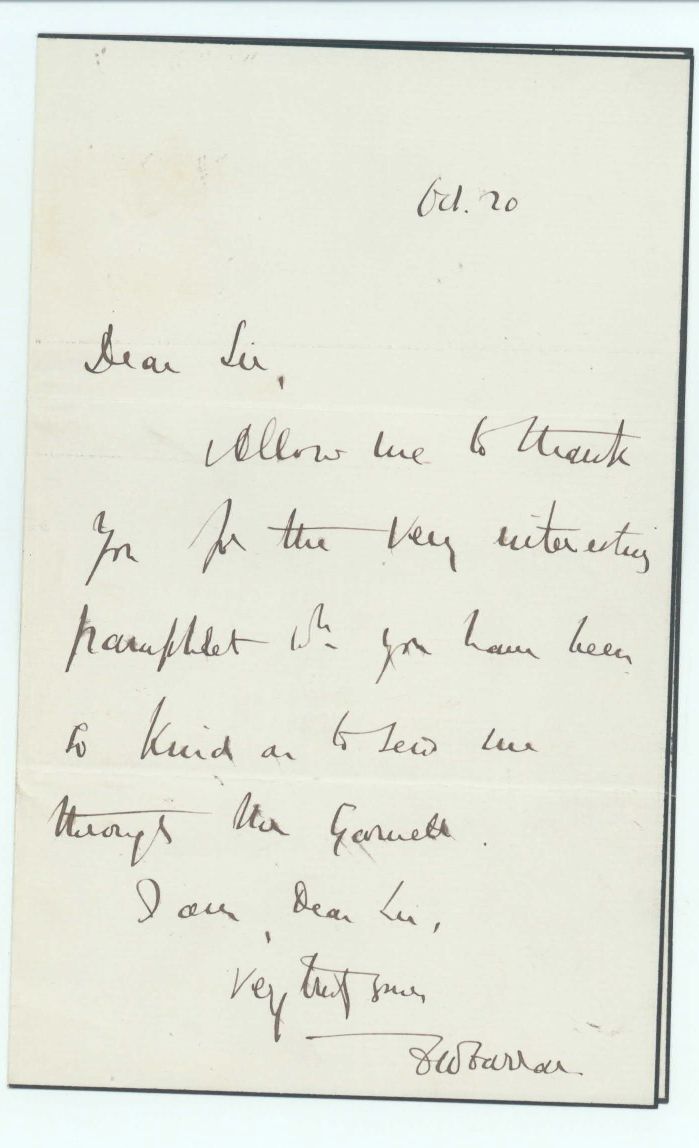 Oct. 20
Dear Sir,
Allow me to thank
you for the very interesting
pamphlet wh you have been
so kind as to send me
through Garnett.
I am, Dear Sir,
Very truly yours
FWFarrar